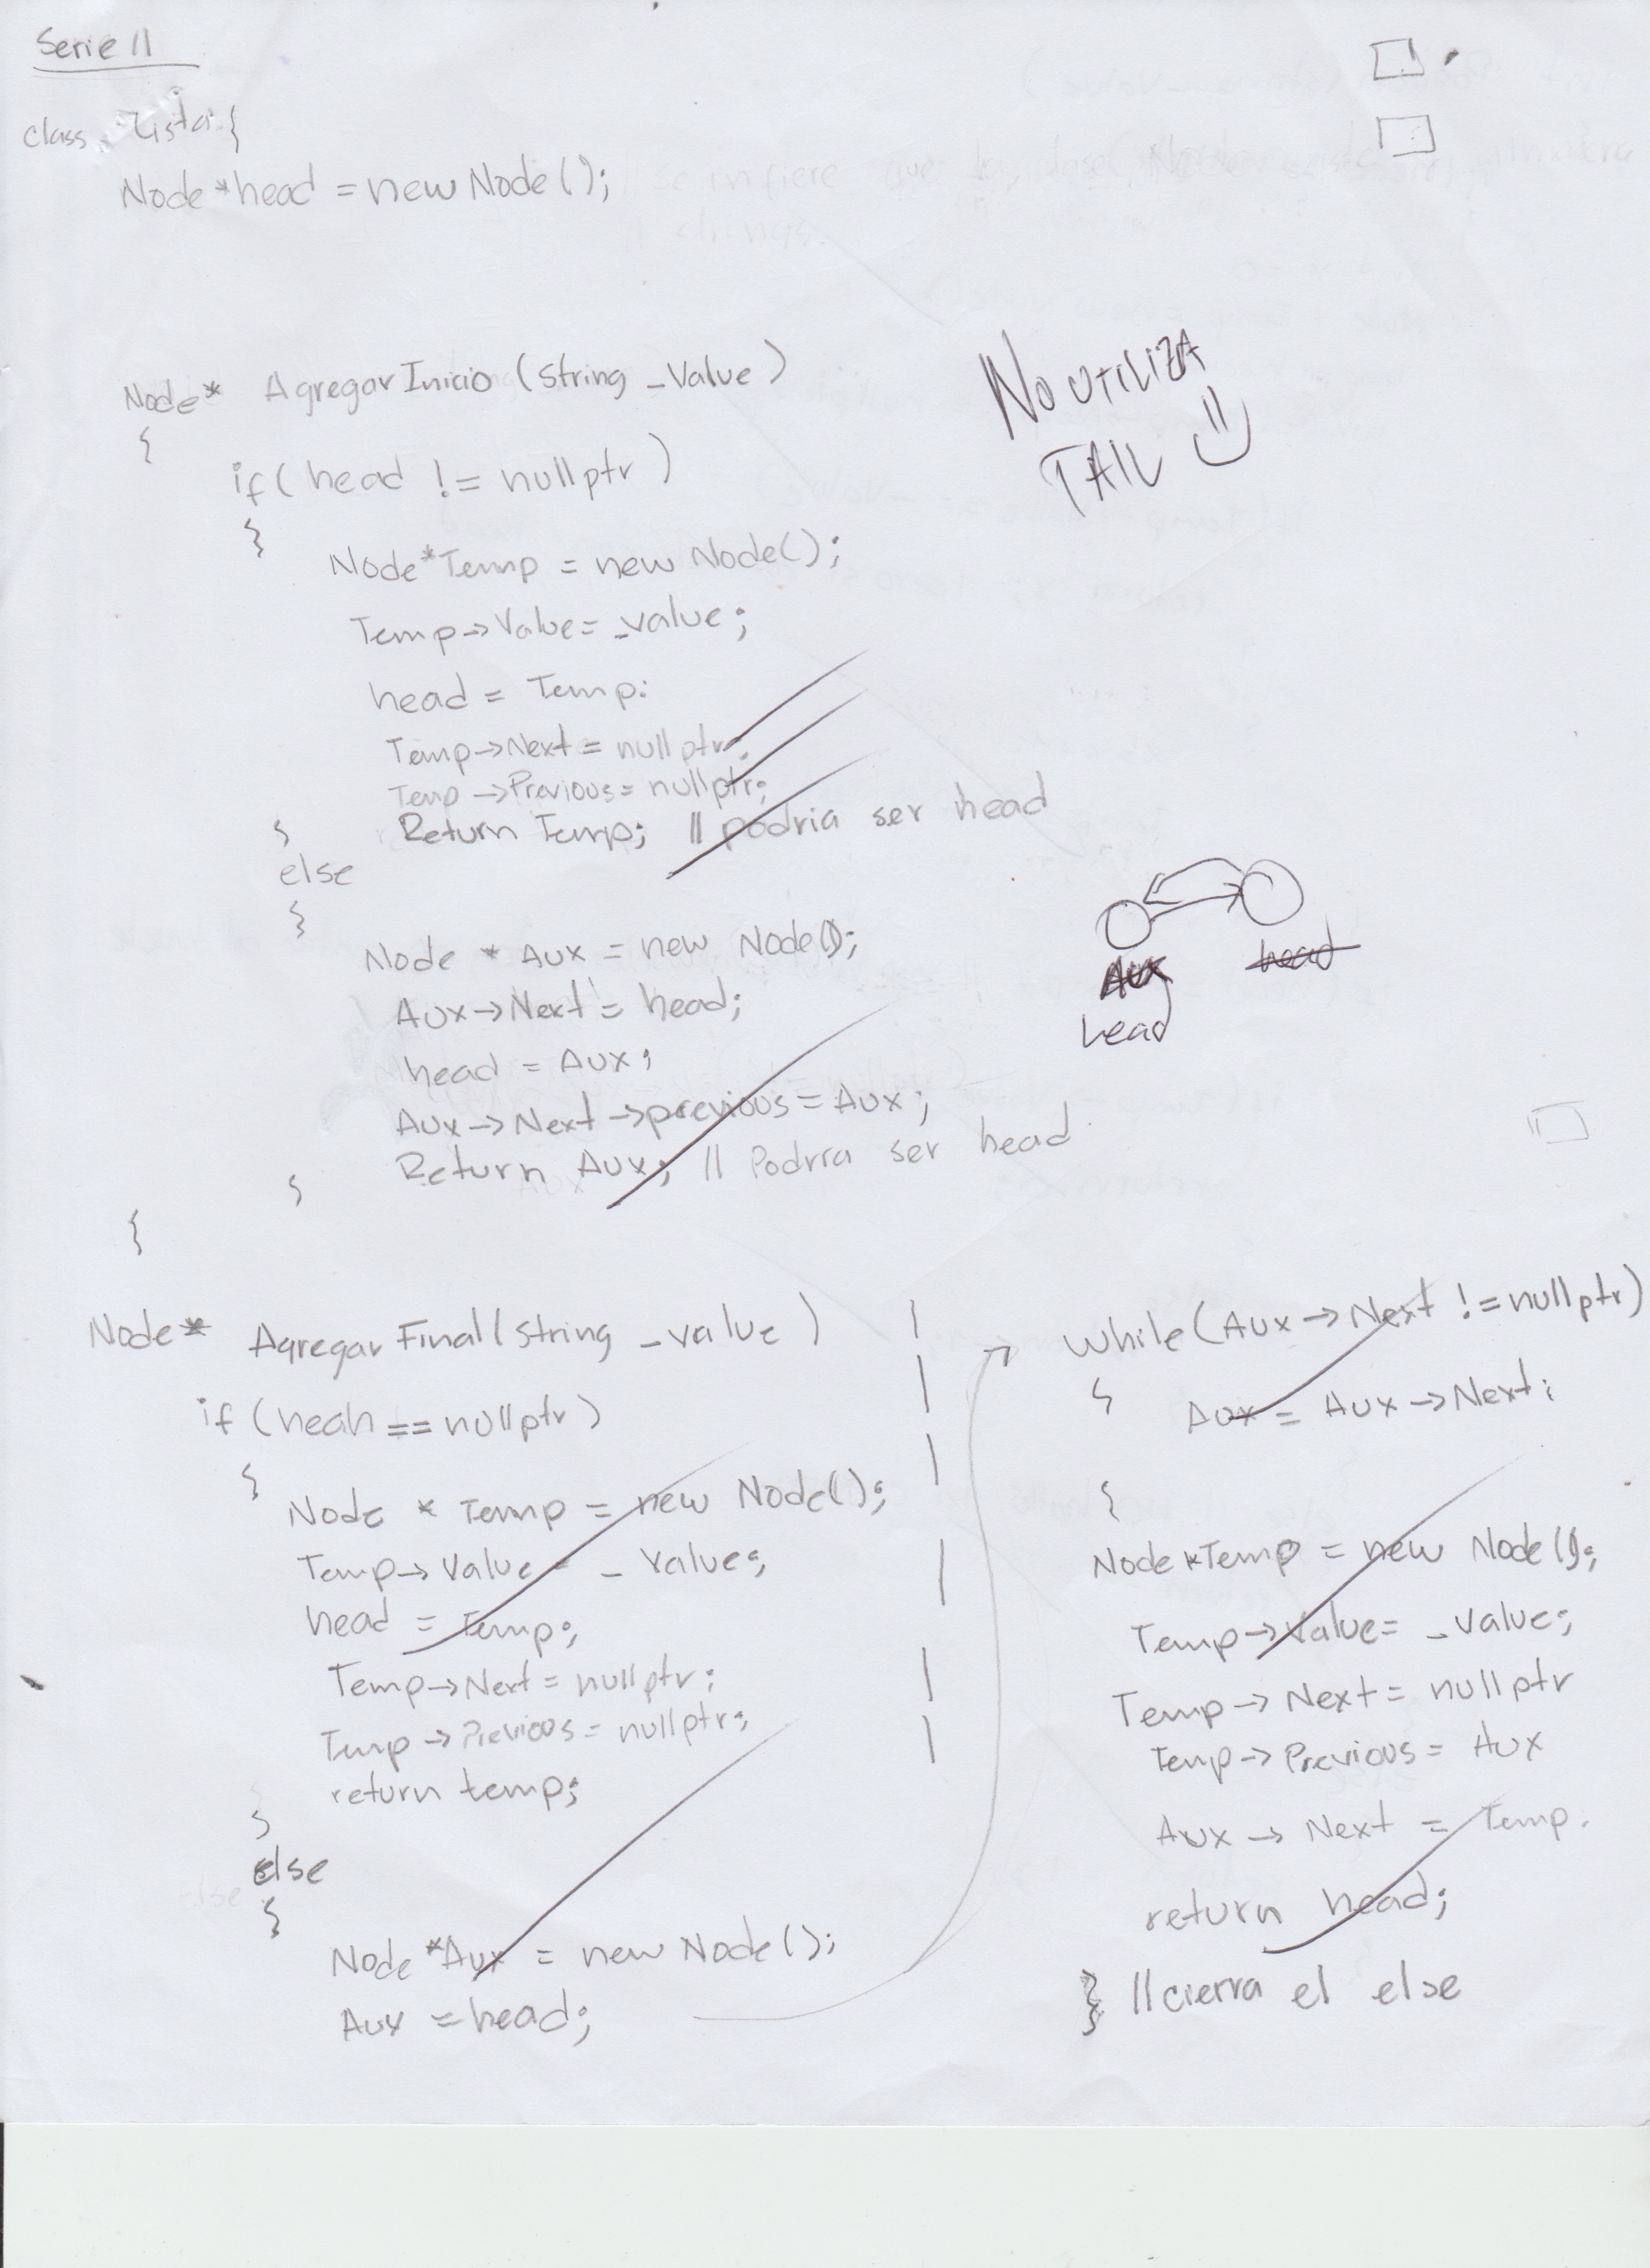 Serie II
class Lista {
Node *head = new Node();
Node* AgregarInicio (string _Value)
{
if( head != nullptr )
}
Node*Temp = new Node();
Temp->Value = _value;
head = Temp;
Temp->Next = nullptr;
Temp->Previous = nullptr;
} Return Temp; // podria ser head
else
}
Node * Aux = new Node();
Aux->Next = head;
head = Aux;
Aux->Next->previous = Aux;
Return Aux; // Podria ser head
}
{
No utiliza
TAIL
Aux head
head
Node* AgregarFinal(string _value)
if (heah == nullptr)
{
Node * Temp = new Node();
Temp->Value = _value;
head = Temp;
Temp->Next = nullptr;
Temp->Previous = nullptr;
return temp;
}
else
{
Node *Aux = new Node();
Aux = head;
While(Aux->Next != nullptr)
{
Aux = Aux->Next;
{
Node *Temp = new Node();
Temp->Value = _value;
Temp->Next = nullptr
Temp->Previous = Aux
Aux->Next = Temp.
return head;
} //cierra el else